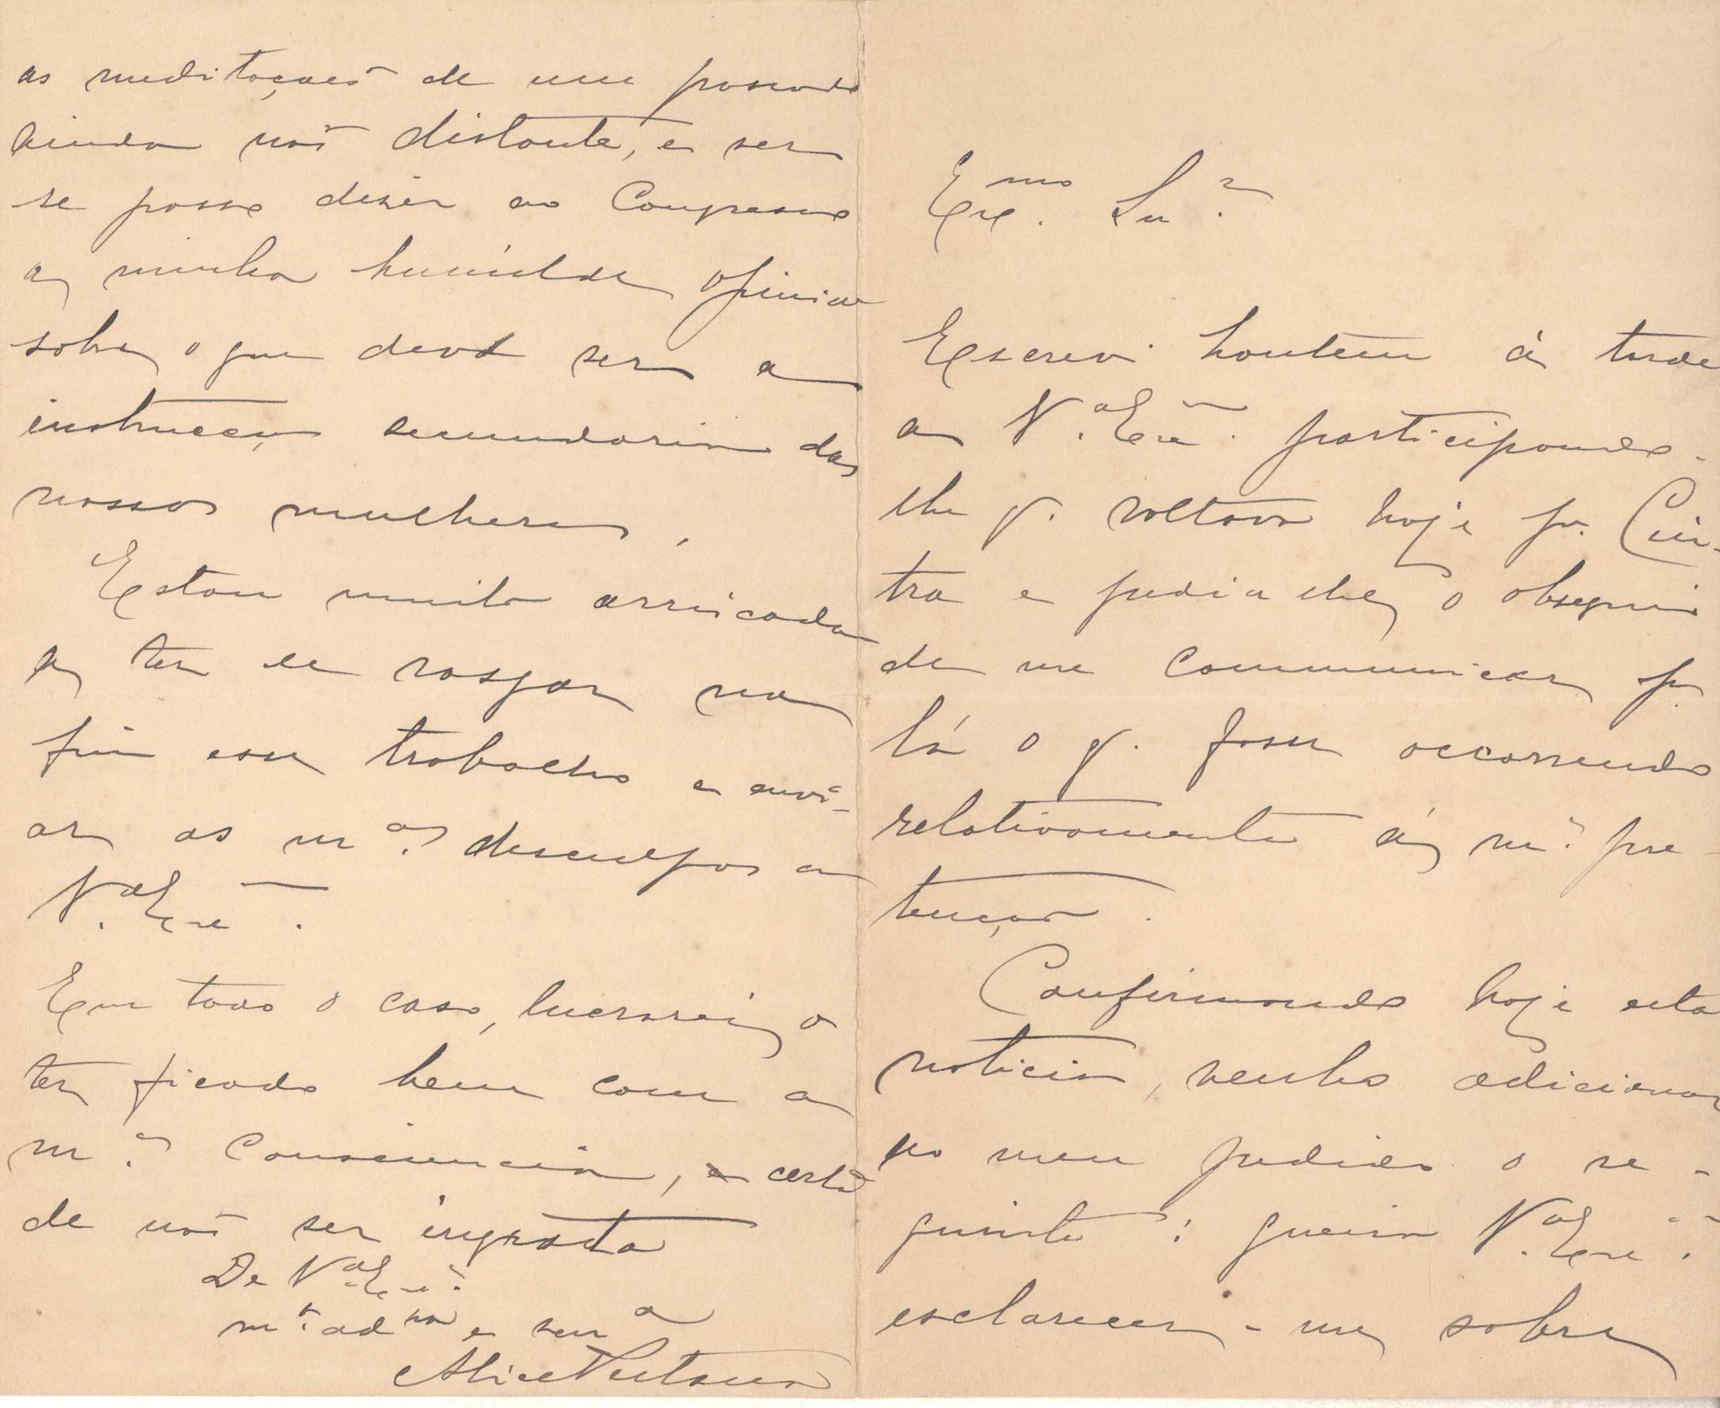 Ex.mo Snr.
Escrevi hontem á tarde
a V.a Ex.a participando-
lhe q. voltava hoje p.a Cin-
tra e pedia lhe o obsequio
de me communicar p.a
lá o q. fosse occorrendo
relativamente á m.a pre-
tenção.
Confirmando hoje esta
noticia, venho addicionar
ao meu pedido o se-
guinte: queira V.a Ex.a
esclarecer-me sobre
as meditações de um passado
ainda não distante, e ser
se posso dizer ao Congresso
a minha humilde opinião
sobre o que deve ser a
instrucção secundaria das
nossas mulheres.
Estou muito arriscada
a ter de rasgar no
fim esse trabalho e envi-
ar as m.as desculpas a
V.a Ex.a.
Em todo o caso, lucrarei o
ter ficado bem com a
m.a consciencia, e certo
de não ser ingrata
De V.a Ex.a
m.to ad.ra e serv.a
Alice Pestana